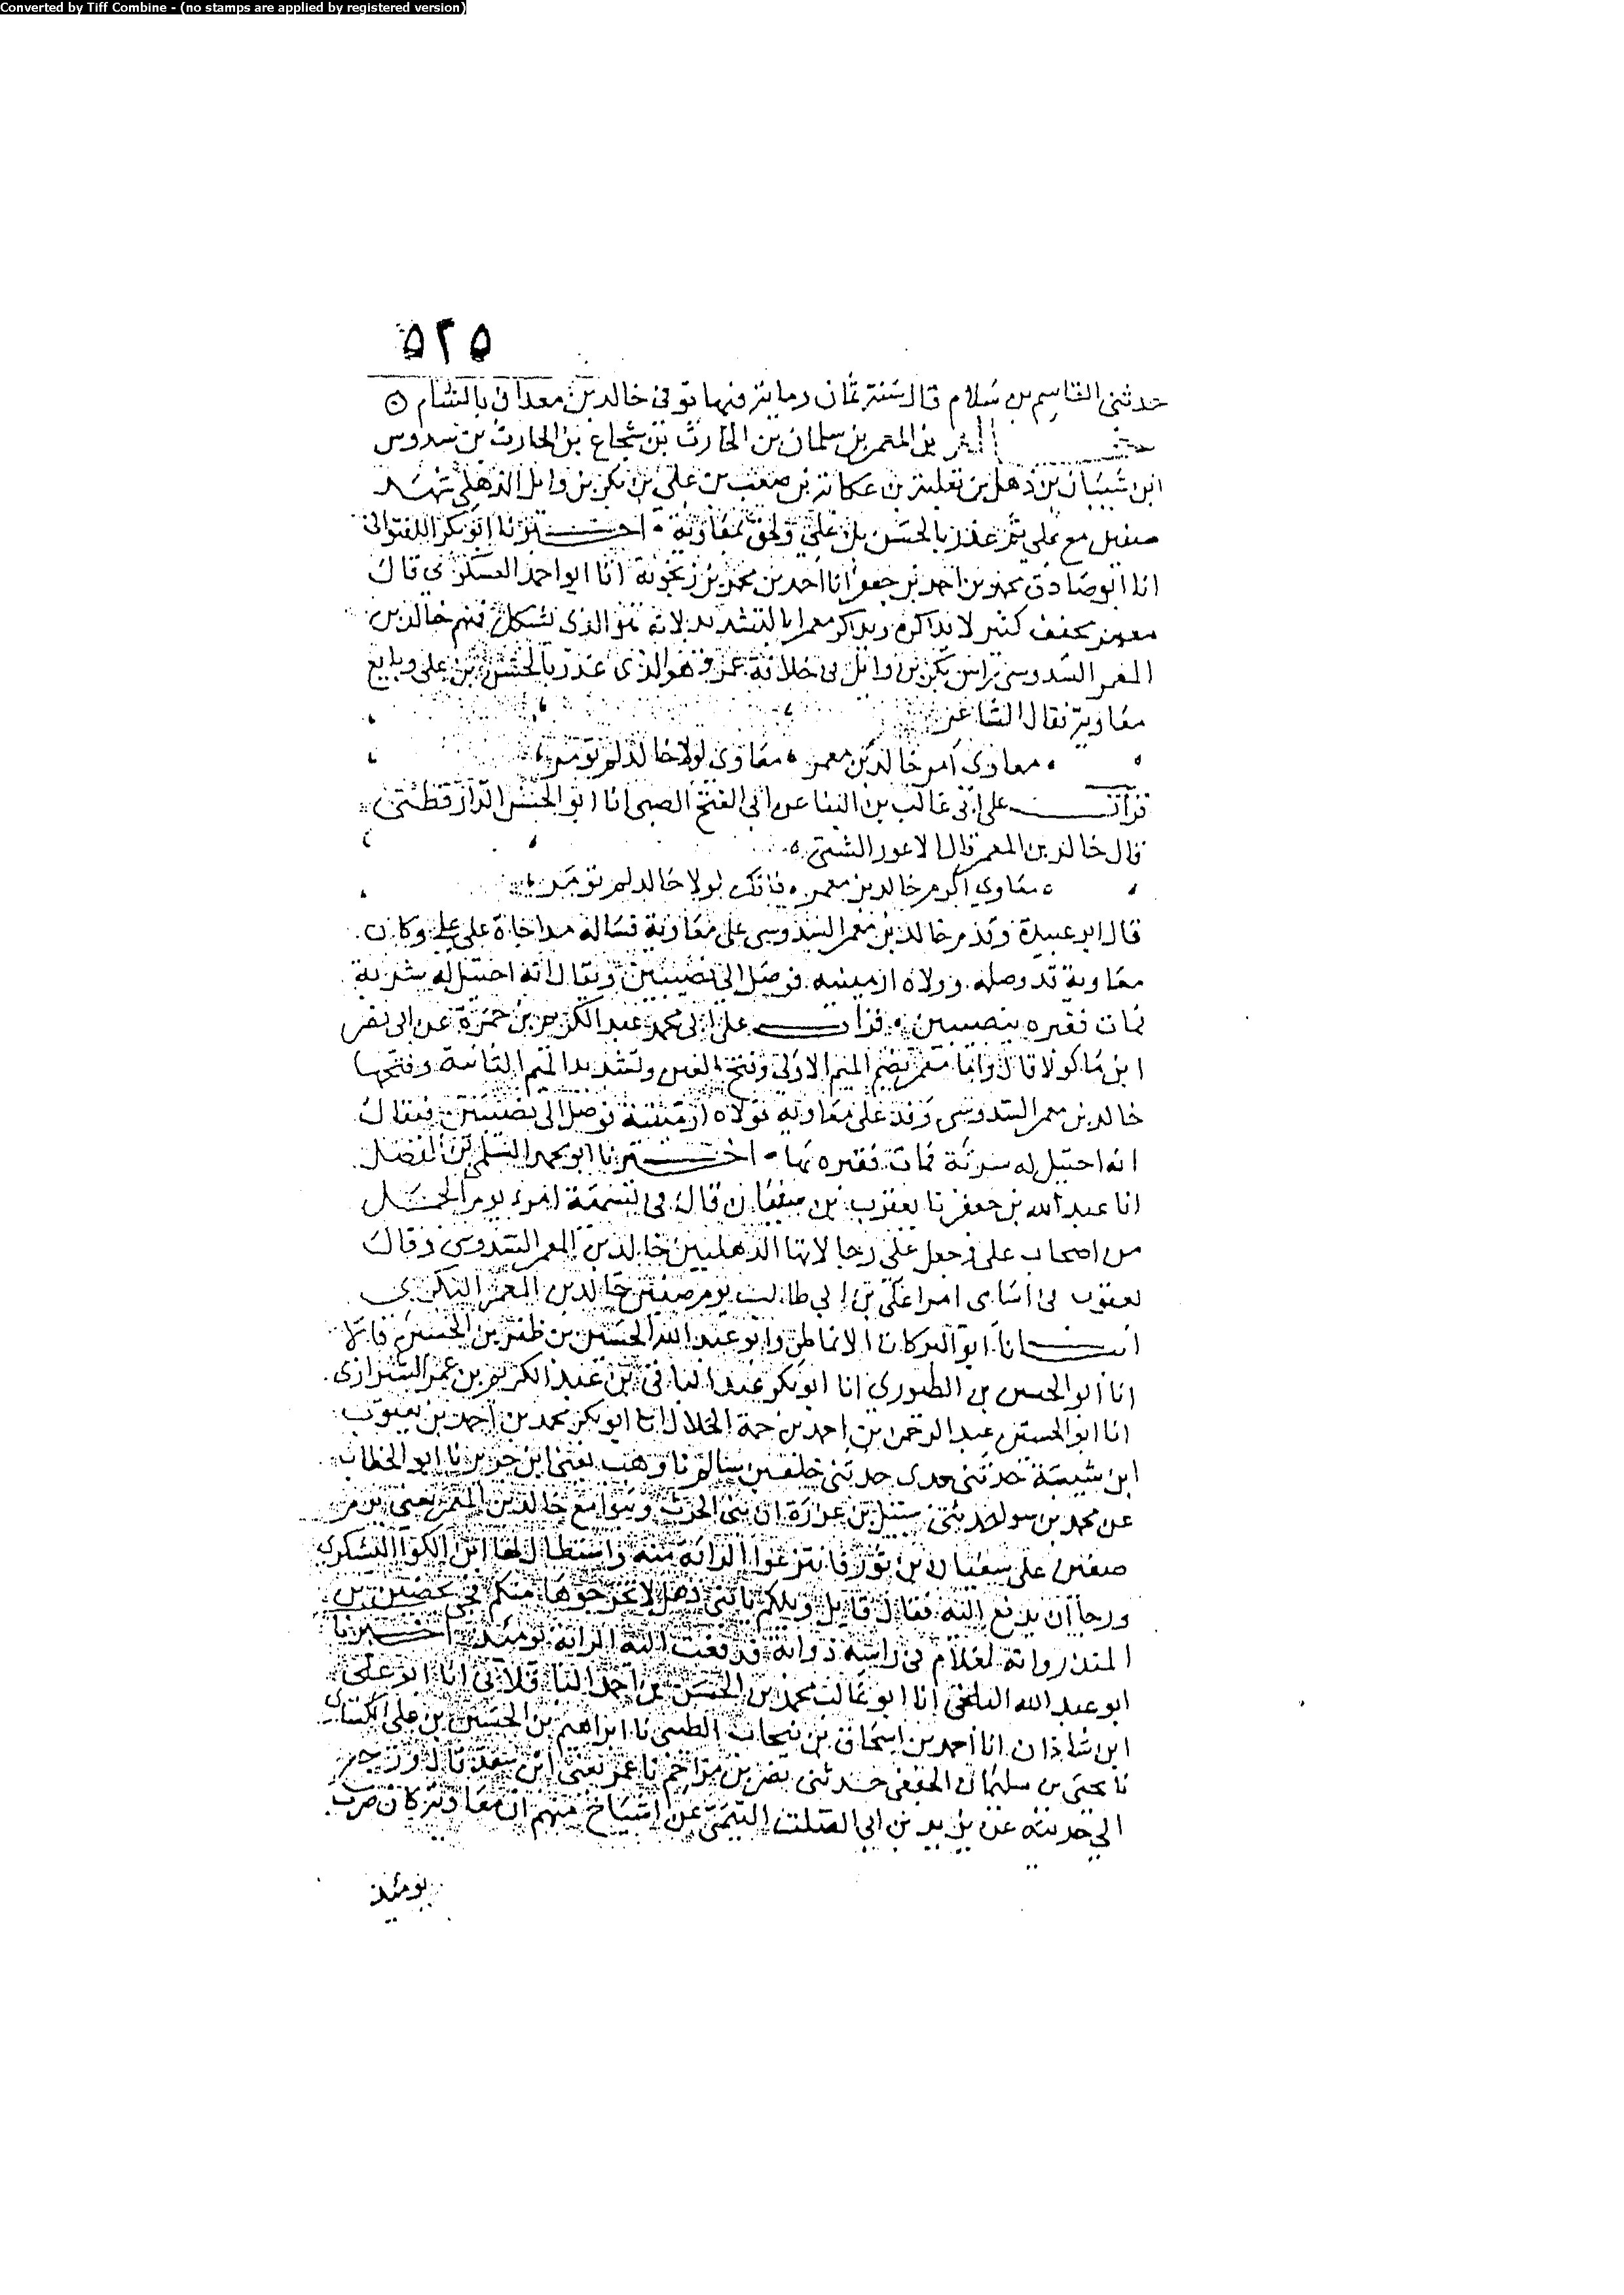 Converted by Tiff Combine - (no stamps are applied by registered version)
٥٢٥
حدثني القاسم بن سلام قال سنة ثمان ومائة فيها توفي خالد بن معدان بالشام
بن المعمر بن سلمان بن الحارث بن شجاع بن الحارث بن سدوس
ابن شيبان بن ذهل بن ثعلبة بن عكابة بن صعب بن علي بن بكر بن وائل الذهلي شهد
صفين مع علي ثم غدر بالحسن بن علي ولحق بمعاوية احبرنا ابو بكر اللفتواني
انا ابو صادق محمد بن احمد بن جعفر انا احمد بن محمد بن زنجوية انا ابو احمد العسكري قال
معمر مخفف كثير لا نذاكره ونذاكر معمرا بالتشديد لانه هو الذي يشكل فمنهم خالد بن
المعمر السدوسي راس بكر بن وائل في خلافة عمر وهو الذي غدر بالحسن بن علي وبايع
معاوية فقال الشاعر
معاوى امر خالد بن معمر معاوى لولا خالد لم تومر
قرات على ابي غالب بن البنا عن ابي الفتح الصبي انا ابو الحسن الدارقطني
قال خالد بن المعمر قال الاعور الشني
معاوي اكرم خالد بن معمر فانك لولا خالد لم تومر
قال ابو عبيدة وقدم خالد بن معمر السدوسي على معاوية فساله مداخاة على علي وكان
معاوية قد وصله وولاه ارمينيه فوصل الى نصيبين ويقال انه احتيل له شربة
فمات فقبره بنصيبين قرات على ابي محمد عبد الكريم بن حمزة عن ابي نصر
ابن ماكولا قال واما معمر بضم الميم الاولى وفتح العين وتشديد الميم الثانية وفتحها
خالد بن معمر السدوسي وفد على معاوية فولاه ارمينية فوصل الى نصيبين فيقال
انه احتيل له شربة فمات فقبره بها اخبرنا ابو محمد السلمي بن الفضل
انا عبد الله بن جعفر نا يعقوب بن سفيان قال في تسمية امراء يوم الجمل
من اصحاب علي وجعل على رجالاتها الذهليين خالد بن المعمر السدوسي وقال
يعقوب في اسامى امرا علي بن ابي طالب يوم صفين خالد بن المعمر البكري
انبانا ابو البركات الانماطي وابو عبد الله الحسين بن ظفر بن الحسين قالا
انا ابو الحسين بن الطيوري انا ابو بكر عبد الباقي بن عبد الكريم بن عمر الشيرازي
انا ابو الحسين عبد الرحمن بن احمد بن حمة الخلال انا ابو بكر محمد بن احمد بن يعقوب
ابن شيبة حدثني جدى حدثني خلف بن سالم نا وهب يعني ابن جرير نا ابو الخطاب
عن محمد بن سوا حدثني سنبل بن عزرة ان بني الحرث وثبوا مع خالد بن المعمر يعني يوم
صفين على سفيان بن ثور فانتزعوا الراية منه واستطال لها ابن الكوا اليشكري
ورجا ان يدفع اليه فقال قايل ويلكم يا بني ذهل لا تخرجوها منكم فجي بحضين بن
المنذر وانه لغلام في راسه ذوابة فدفعت اليه الراية يومئذ اخبرنا
ابو عبد الله البلخي انا ابو غالب محمد بن الحسن بن احمد البا قلاني انا ابو علي
ابن شاذان انا احمد بن اسحاق بن نيخاب الطيبى نا ابراهيم بن الحسين بن علي الكسائي
نا يحيى بن سليمان الجعفى حدثني نصر بن مزاحم نا عمر يعني ابن سعد قال ورجع
الى حديثه عن يزيد بن ابي الصلت التيمي عن اشياخ منهم ان معاوية كان ضرب
يومئذ